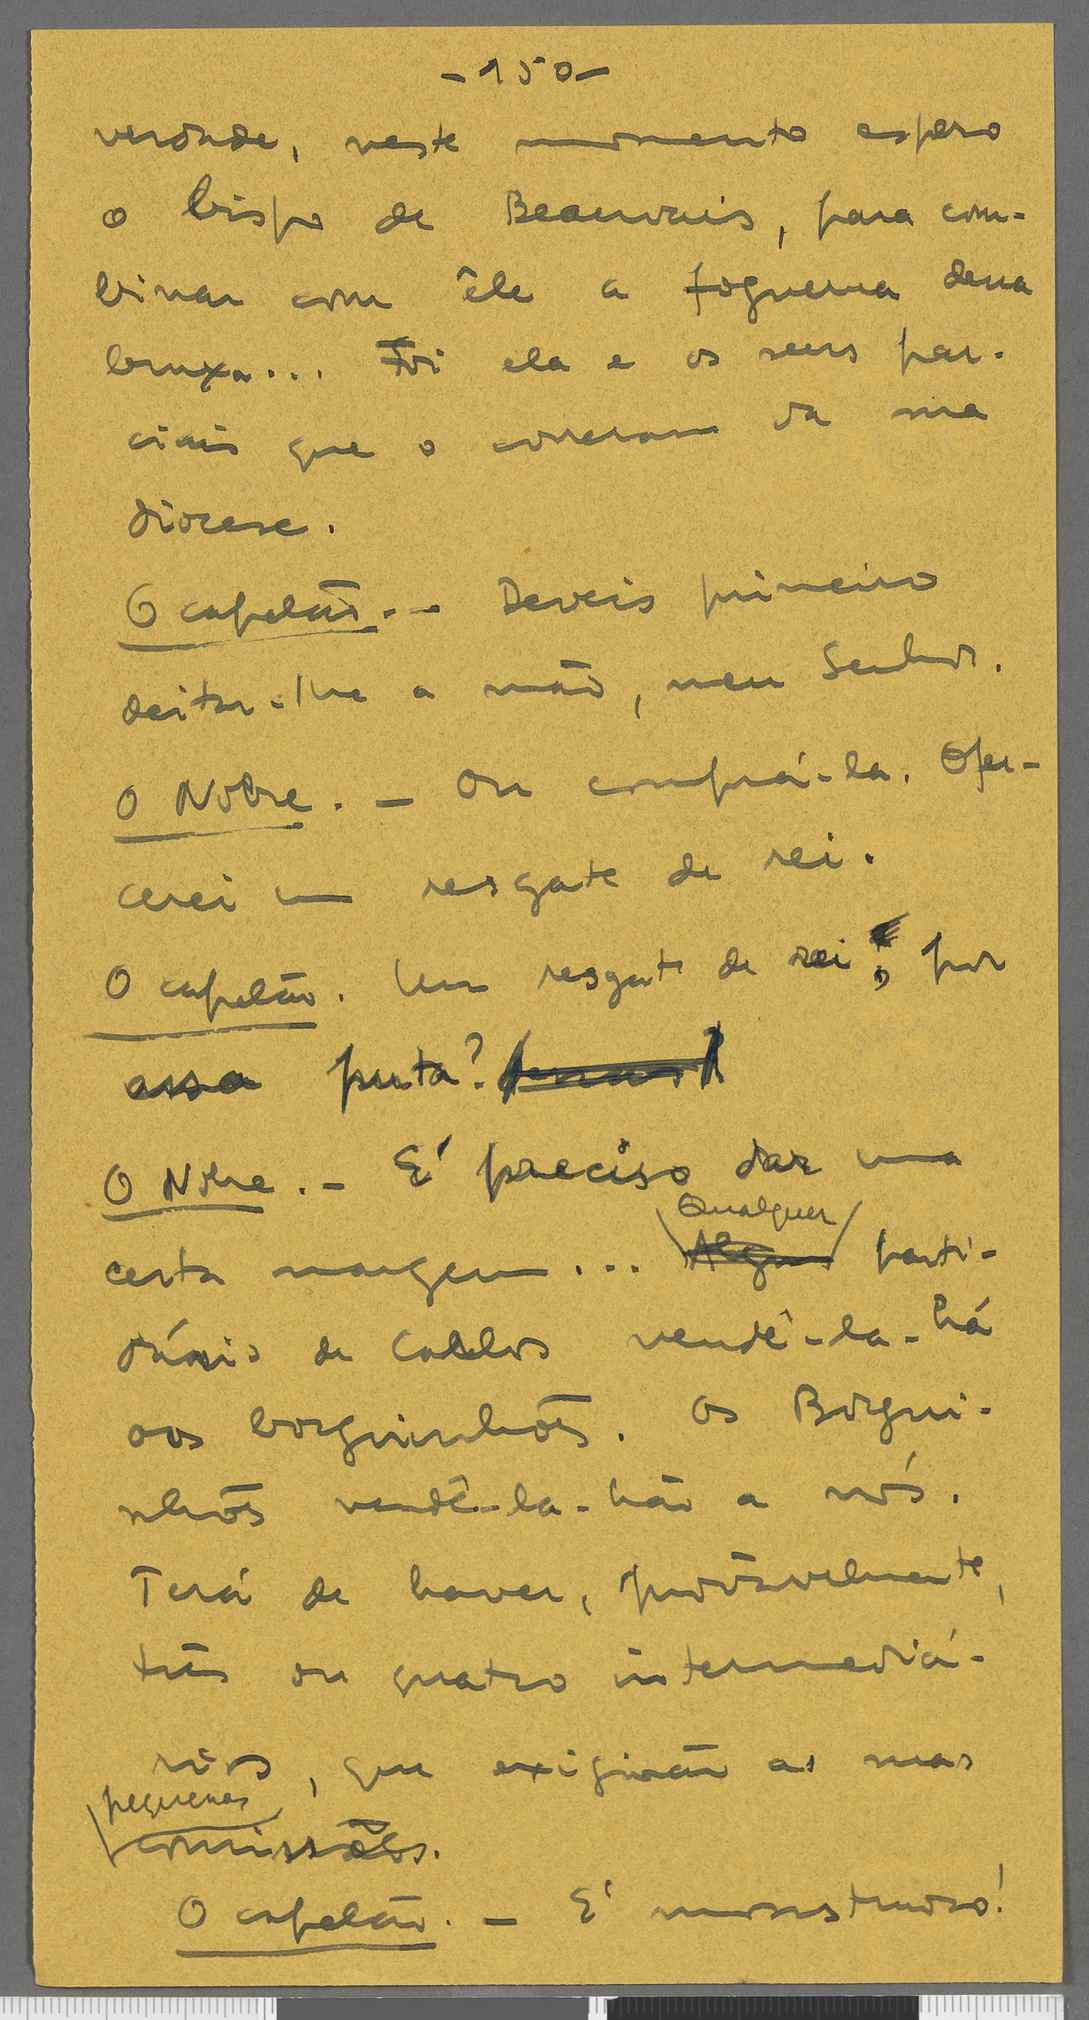 -150-
verdade, neste momento espero
o bispo de Beauvais, para com-
binar com êle a fogueira dessa
bruxa... Foi ela e os seus par-
ciais que o correram da sua
diocese.
O capelão. - Deveis primeiro
deitar-lhe a mão, meu Senhor.
O Nobre. - Ou comprá-la. Ofer-
cerei um resgate de rei.
O capelão. Um resgate de rei, por
essa puta?
O Nobre. - É preciso dar uma
Qualquer
certa margem... Algum parti-
dário de Carlos vendê-la-há
aos borguinhões. Os Borgui-
nhões vendê-la-hão a nós.
Terá de haver, provàvelmente,
três ou quatro intermediá-
rios, que exigirão as suas
pequenas
comissões.
O capelão. - É monstruoso!